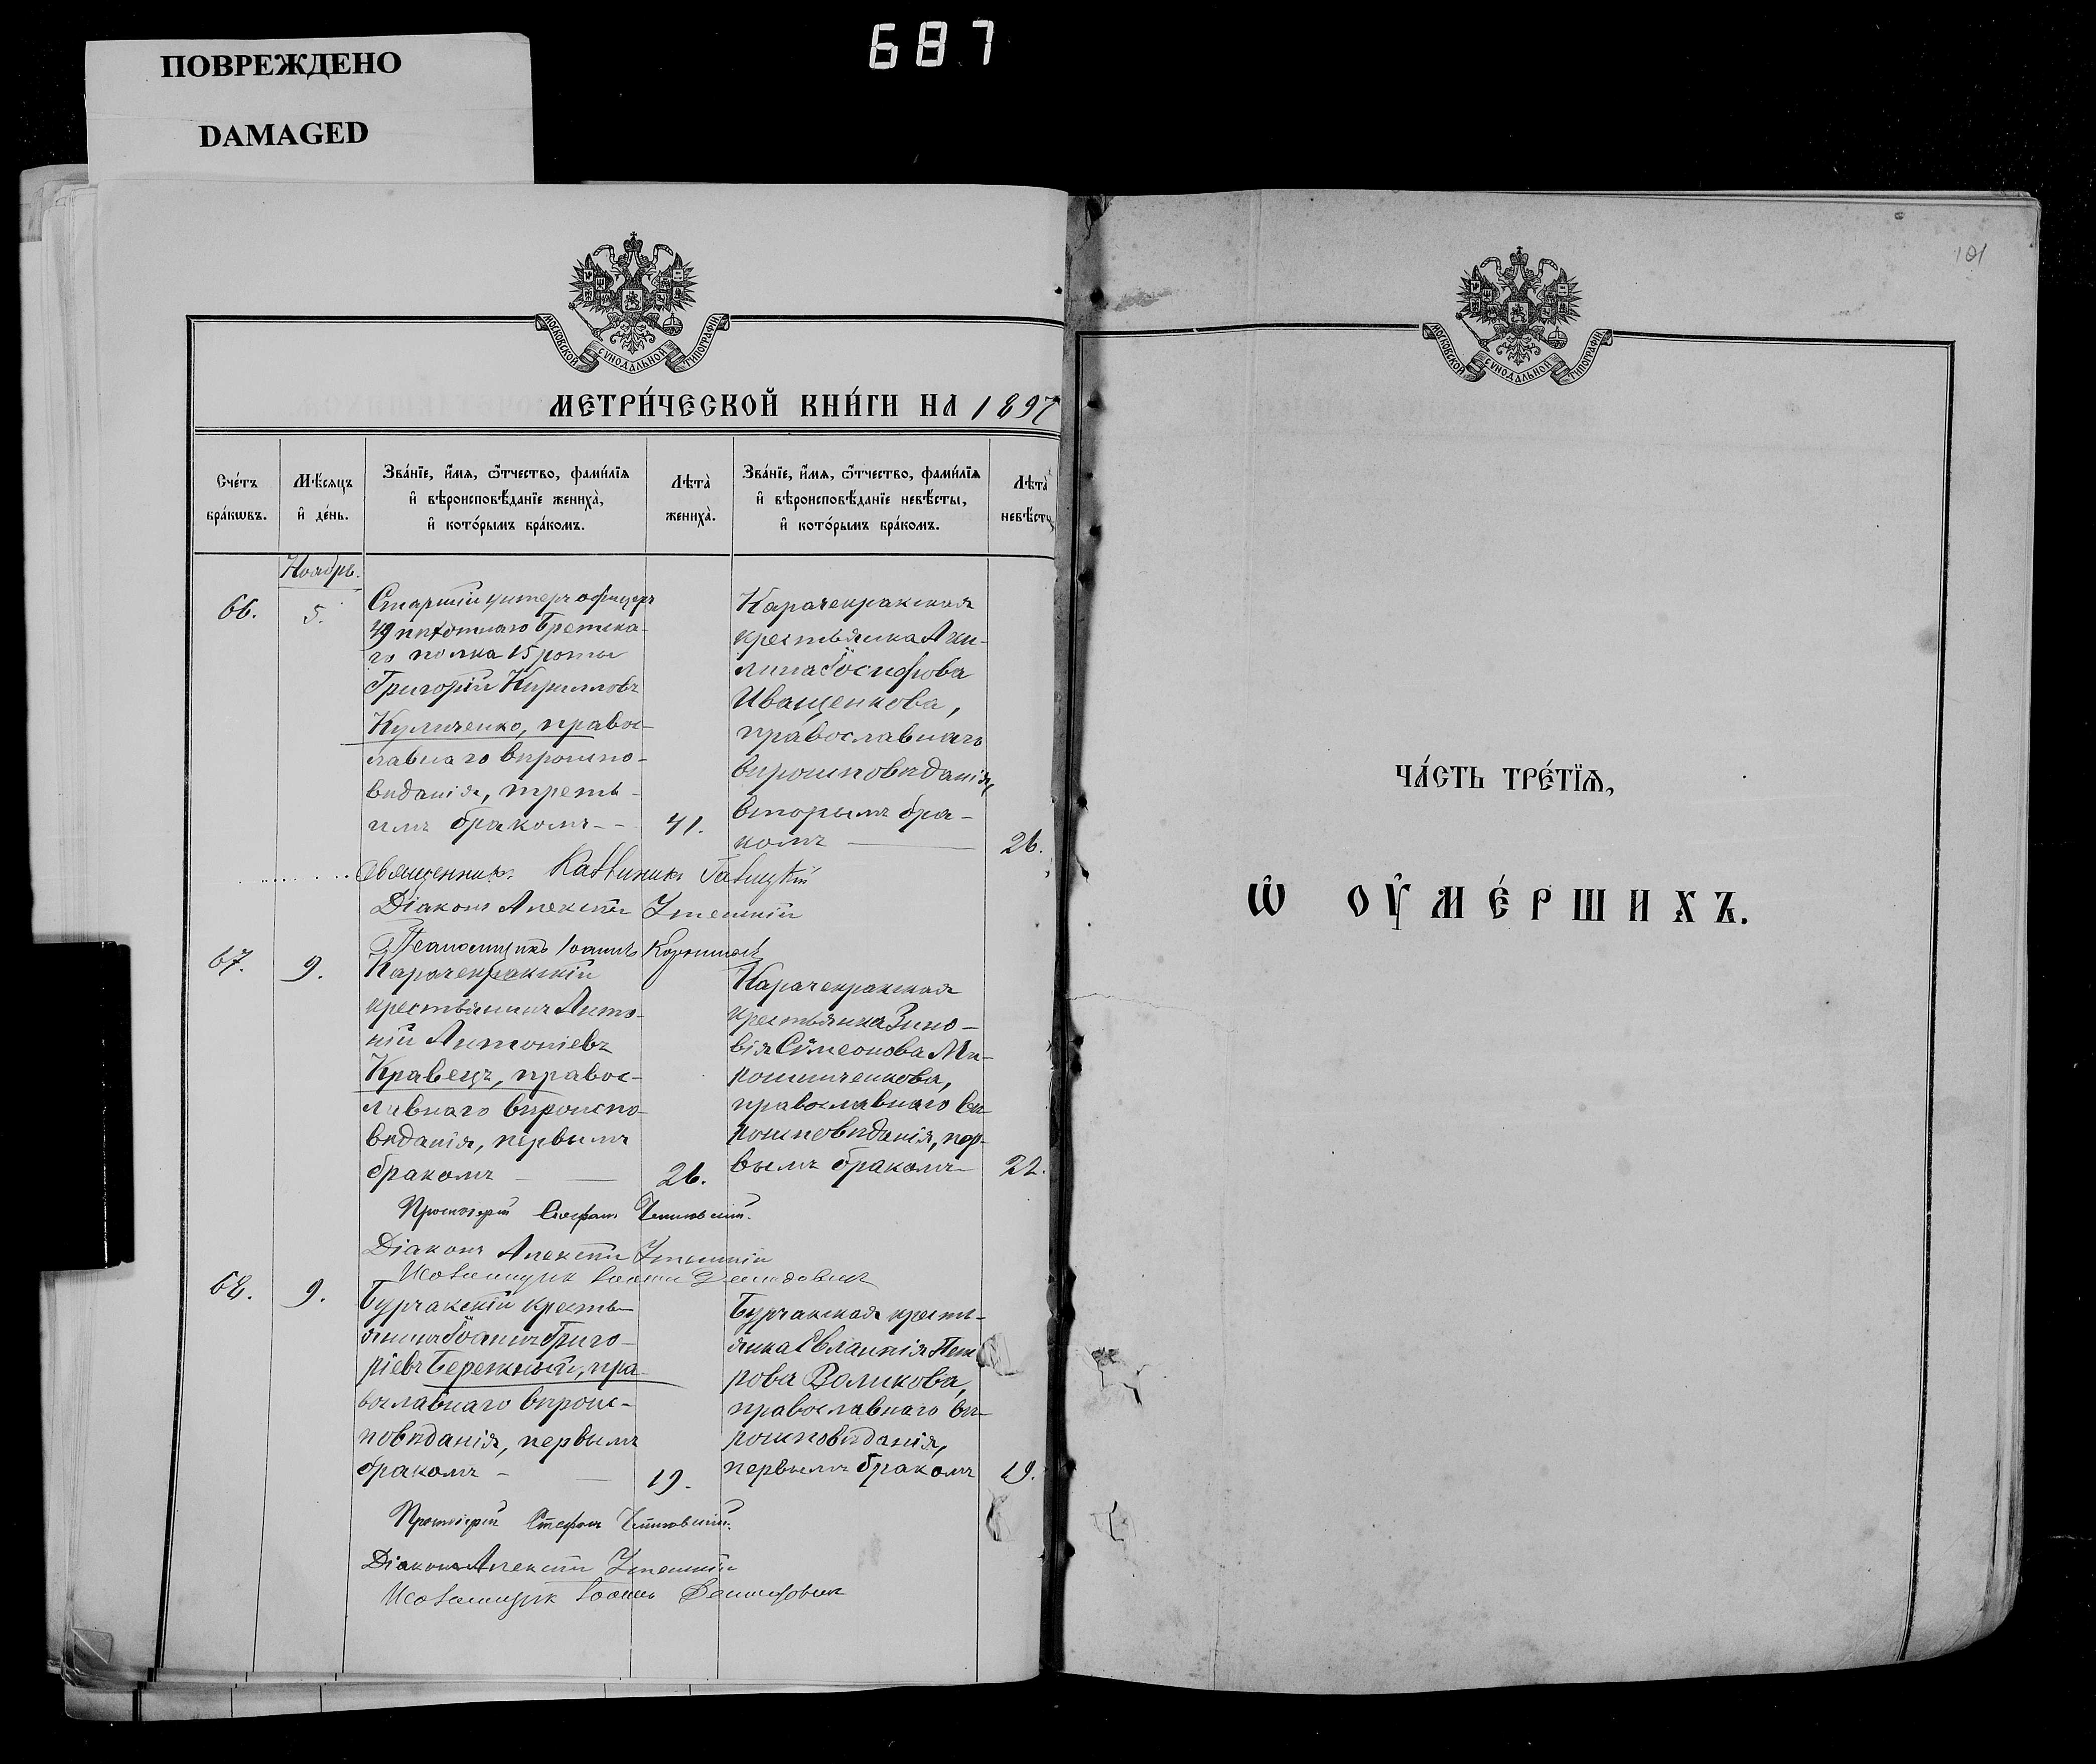 687
ПОВРЕЖДЕНО
DAMAGED
101
МОСКОВСКОЙ СУНОДАЛЬНОЙ ТИПОГРАФІИ
МЕТРИ́ЧЕСКОЙ КНИ́ГИ НА 1897
Сче́тъ бра́кѡвъ.
Мѣ́сяцъ и҆ де́нь.
Зва́нїе, и҆́мя, ѻ҆́тчество, фами́лїя и҆ вѣроисповѣ́данїе жениха̀, и҆ кото́рымъ бра́комъ.
Лѣта̀ жениха̀.
Зва́нїе, и҆́мя, ѻ҆́тчество, фами́лїя и҆ вѣроисповѣ́данїе невѣ́сты, и҆ кото́рымъ бра́комъ.
Лѣта̀ невѣ́сты
Ноябрь.
66.
5.
Старшій унтеръ офицеръ
49 пѣхотнаго Брестска-
го полка 15 роты
Григорій Кирилловъ
Куличенко, правос-
лавнаго вѣроиспо-
вѣданія, треть-
имъ бракомъ - -
41.
Карачекракская
крестьянка Аки-
лина Іосифова
Иващенкова,
православнаго
вѣроисповѣданія,
вторымъ бра-
комъ —
26.
Священникъ
Діаконъ Алексѣй
Псаломщикъ Іоаннъ
67.
9.
Карачекракскій
крестьянинъ Анто-
ній Антоніевъ
Кравецъ, правос-
лавнаго вѣроиспо-
вѣданія, первымъ
бракомъ - —
26.
Карачекракская
крестьянка Зино-
вія Сѵмеонова Ми-
рошниченкова,
православнаго вѣ-
роисповѣданія, пер-
вымъ бракомъ -
22.
Протоіерей Стефанъ
Діаконъ Алексѣй
Псаломщик Іоаннъ
68.
9.
Бурчакскій кресть-
янинъ Іоаннъ Григо-
ріевъ Бережный, пра-
вославнаго вѣроис-
повѣданія, первымъ
бракомъ - —
19.
Бурчакская кресть-
янка Евлампія Пет
рова Воликова,
православнаго вѣ-
роисповѣданія,
первымъ бракомъ
19.
Протоіерей Стефанъ
Діаконъ Алексѣй
Псаломщик Іоаннъ
МОСКОВСКОЙ СУНОДАЛЬНОЙ ТИПОГРАФІИ
ЧА́СТЬ ТРЕ́ТЇѦ,
Ѡ҆ ОУ҆МЕ́РШИХЪ.